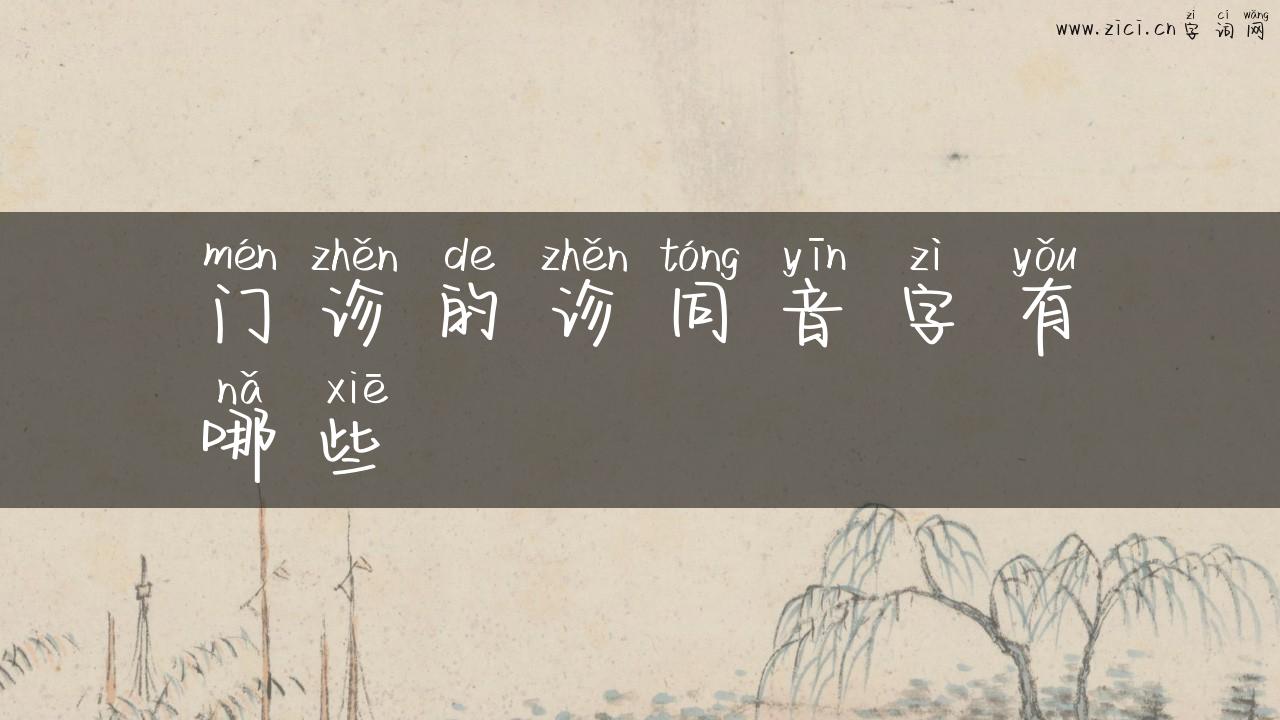 zì cí wǎng
www.zici.cn 字词网
mén zhěn de zhěn tóng yīn zì yǒu
门诊的诊同音字有
nǎ xiē
哪些